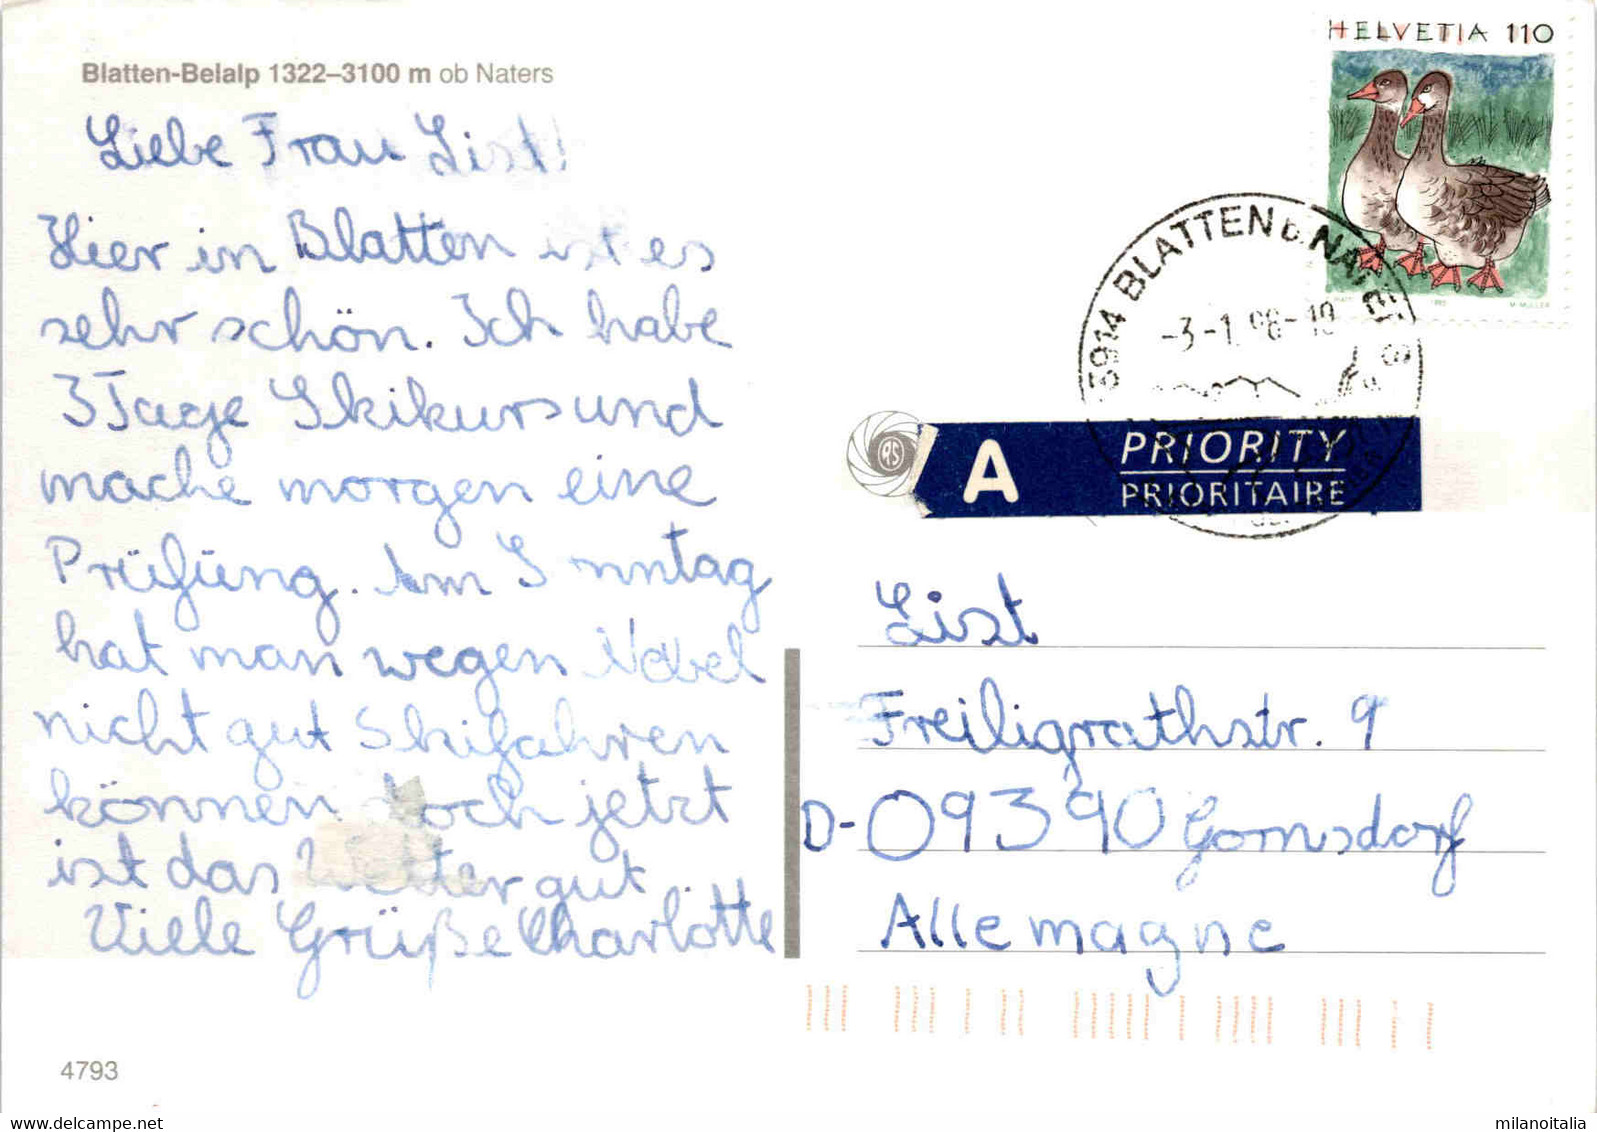 Blatten-Belalp 1322–3100 m ob Naters
Liebe Frau List!
Hier in Blatten ist es
sehr schön. Ich habe
3 Tage Skikurs und
mache morgen eine
Prüfüng. Am Sonntag
hat man wegen Nebel
nicht gut Skifahren
können doch jetzt
ist das Wetter gut
Viele Grüße Charlotte
4793
HELVETIA 110
M. MÜLLER
3914 BLATTEN b. NATERS
-3-1.98-18
RS
A PRIORITY
PRIORITAIRE
List
Freiligrathstr. 9
D-09390 Gornsdorf
Allemagne
milanoitalia